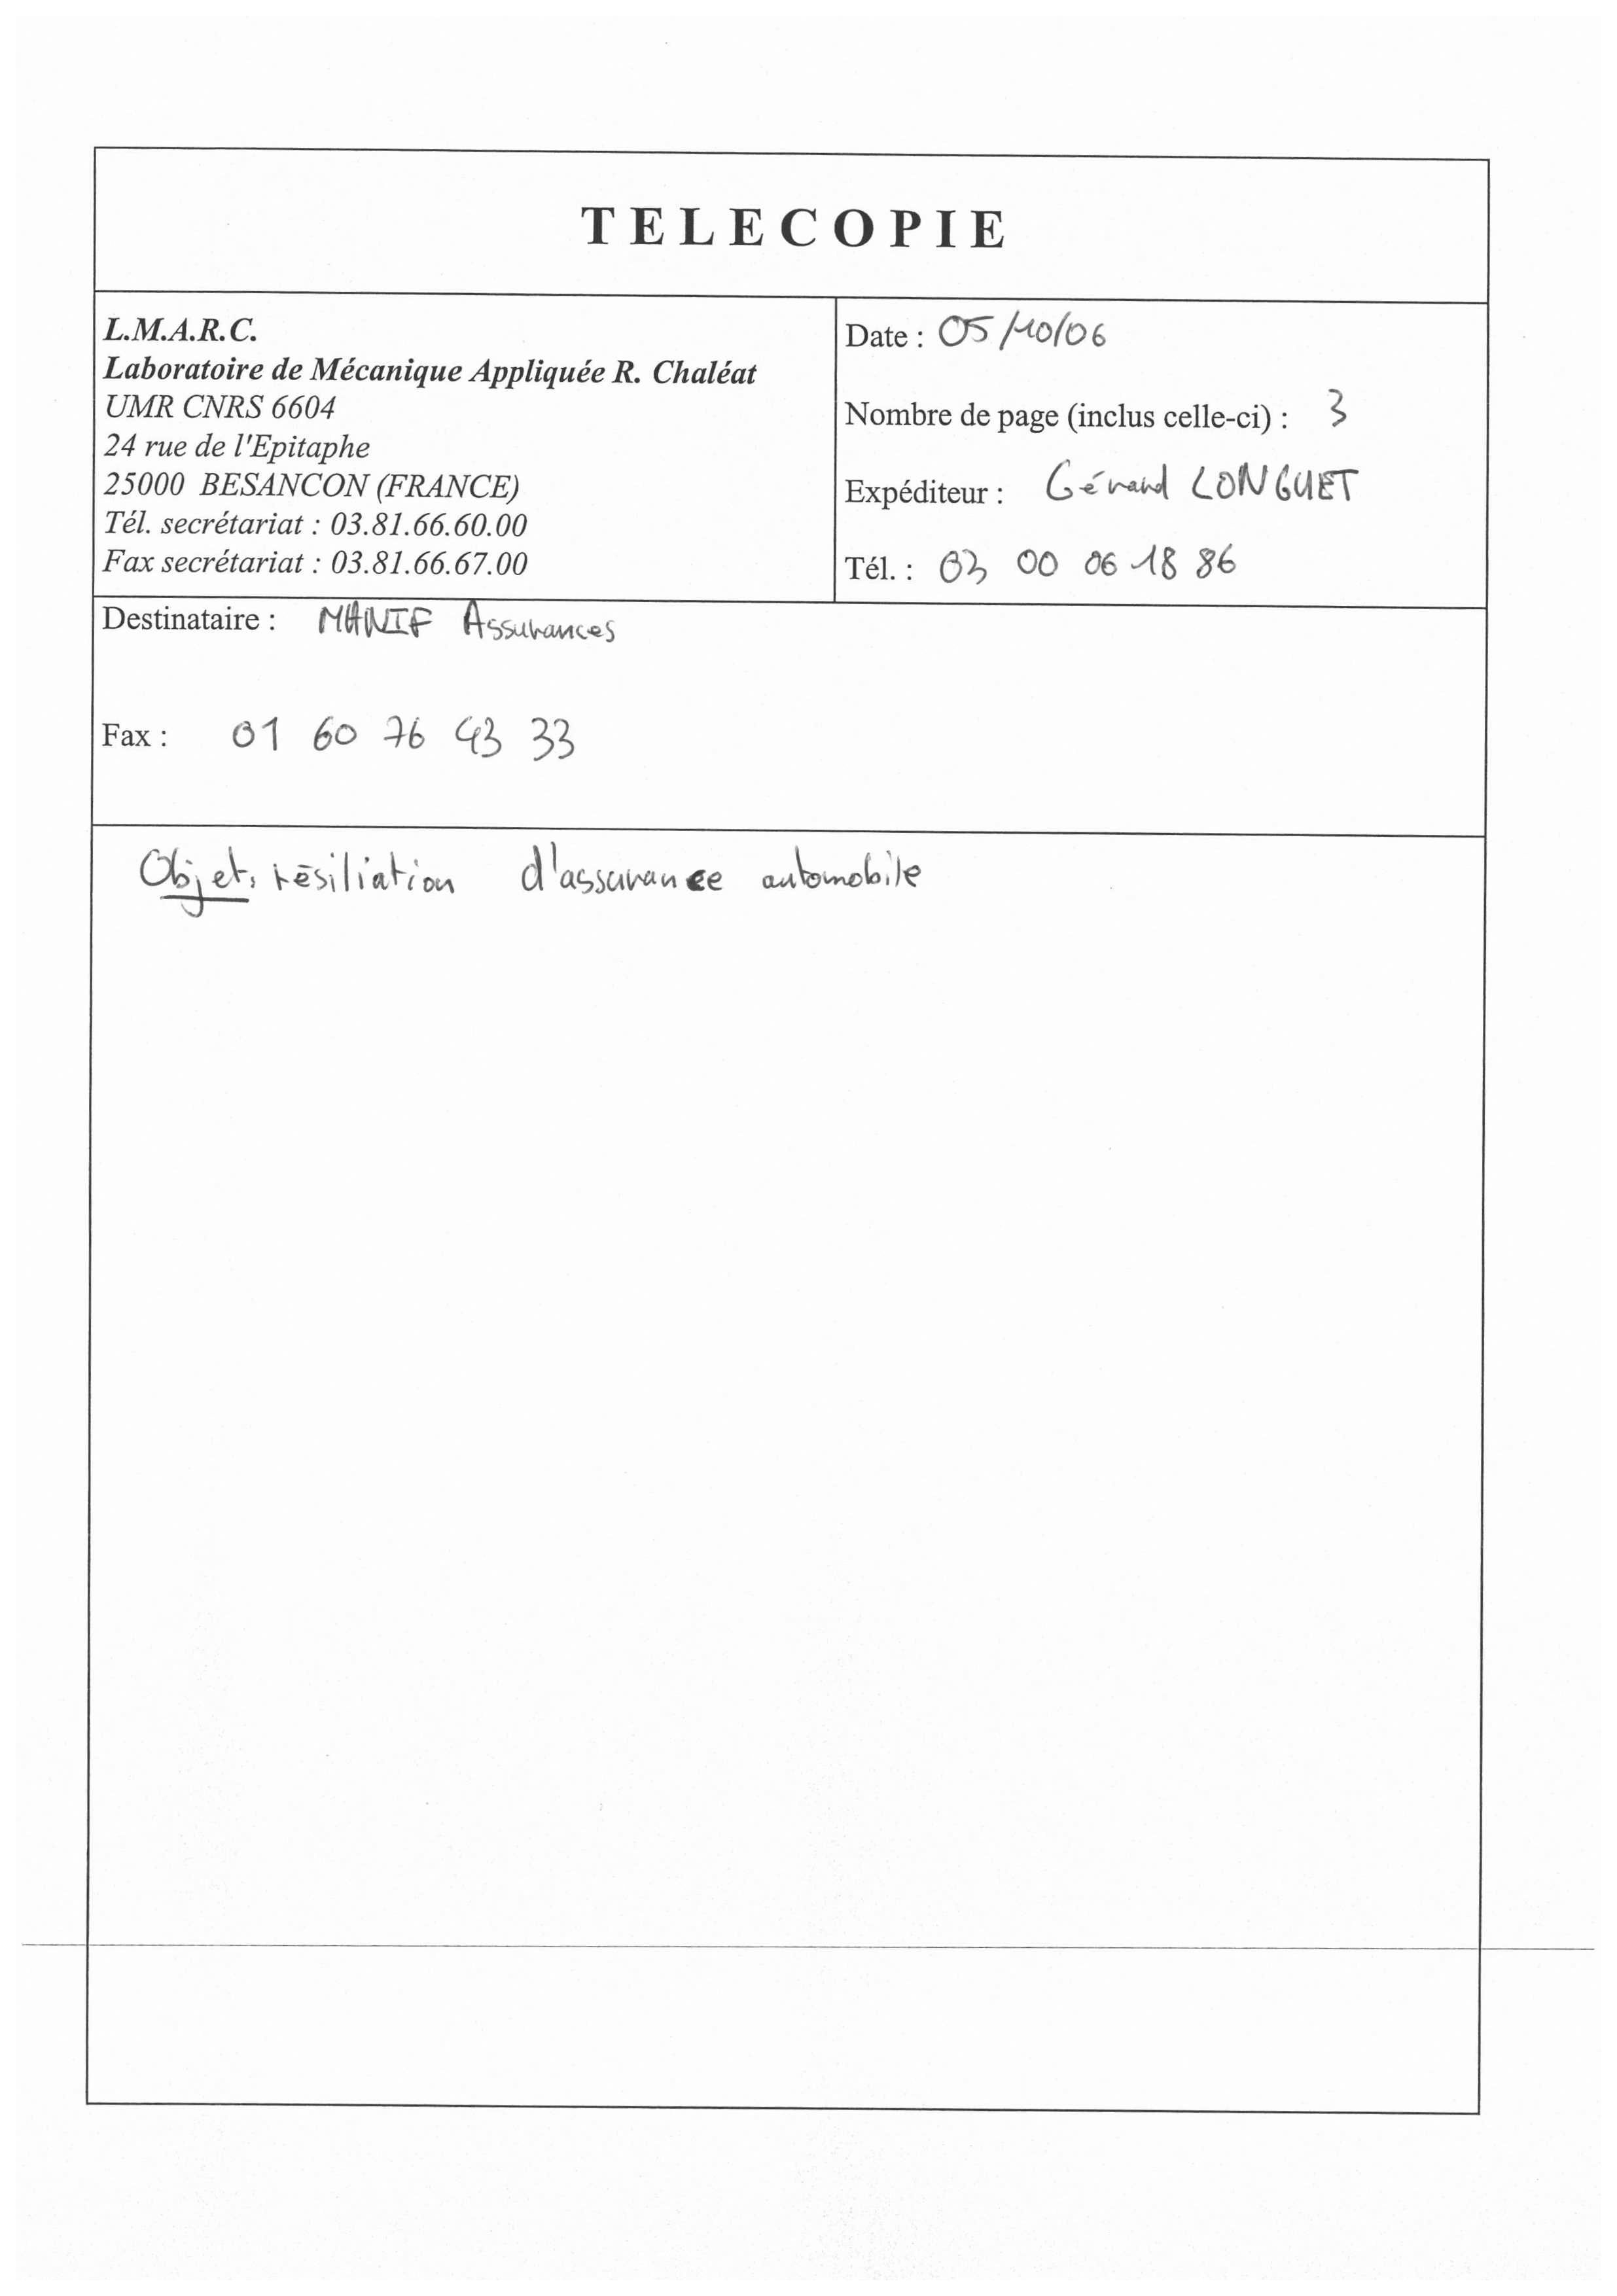 TELECOPIE
L.M.A.R.C.
Laboratoire de Mécanique Appliquée R. Chaléat
UMR CNRS 6604
24 rue de l'Epitaphe
25000 BESANCON (FRANCE)
Tél. secrétariat : 03.81.66.60.00
Fax secrétariat : 03.81.66.67.00
Date : 05/10/06
Nombre de page (inclus celle-ci) : 3
Expéditeur : Gérard LONGUET
Tél. : 03 00 06 18 86
Destinataire : MANIF Assurances
Fax : 01 60 76 43 33
Objet: résiliation d'assurance automobile